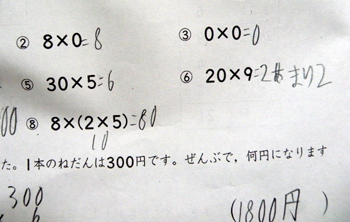 ② 8×0=8 ③ 0×0=0
⑤ 30×5=6 ⑥ 20×9=2あまり2
00 ⑧ 8×(2×5)=80
10
た。1本のねだんは300円です。ぜんぶで,何円になります
300
6
(1800円)